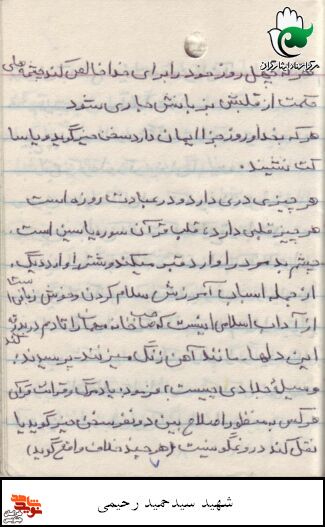 مرکز اسناد ایثارگران
هرکه چهل روز خود را برای خدا خالص کند چشمه های
حکمت از قلبش بزبانش جاری شود
هرکه بخدا و روز جزا ایمان دارد سخن خیر گوید یا سا
کت نشیند.
هرچیزی دری دارد و در عبادت روزه است
هرچیز قلبی دارد، قلب قرآن سوره یاسین است.
چشم بد مرد را وارد قبر میکند و شتر را وارد دیگ.
از جمله اسباب آمرزش سلام کردن و خوش زبانی است
از آداب اسلامی اینست که صاحب خانه مهمان را تا دم در بدرقه کند
این دلها مانند آهن زنگ میزنند - پرسیدند:
وسیله جلا دی چیست؟ فرمود: یاد مرگ و قرائت قرآن
هرکس به منظور اصلاح بین دو نفر سخن خیر گوید یا
نقل کند دروغگو نیست (هرچند خلاف واقع گوید)
شهید سیدحمید رحیمی
نوید شاهد